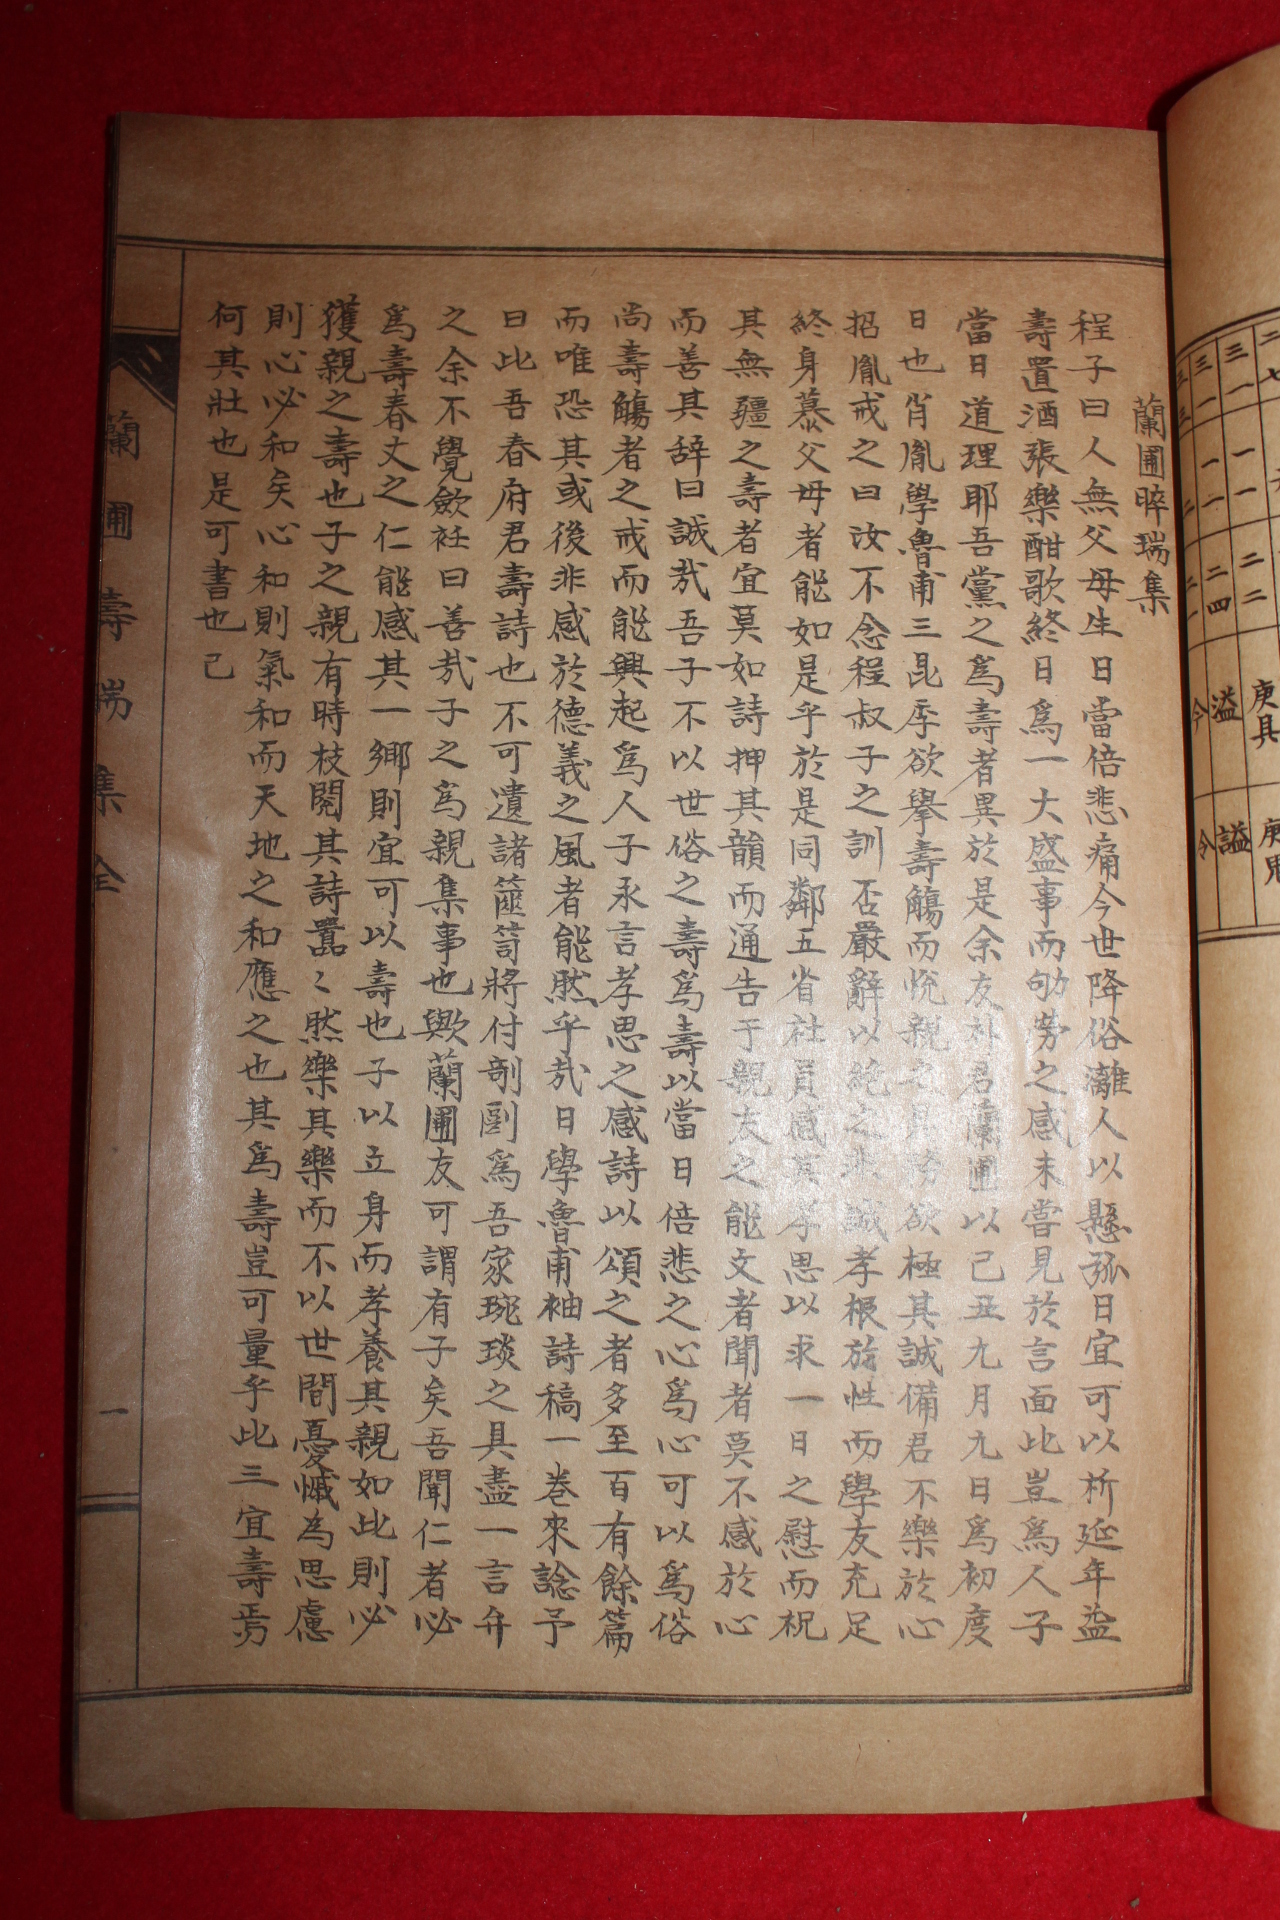 蘭圃晬瑞集
程子曰人無父母生日當倍悲痛今世降俗漓人以懸弧日宜可以祈延年益
壽置酒張樂酣歌終日爲一大盛事而劬勞之感未嘗見於言面此豈爲人子
當日道理耶吾黨之爲壽者異於是余友朴君蘭圃以己丑九月九日爲初度
日也肖胤學魯甫三昆季欲擧壽觴而悅親之具 欲極其誠備君不樂於心
招胤戒之曰汝不念程叔子之訓否嚴辭以絶之非誠孝根於性而學友充足
終身慕父母者能如是乎於是同鄰五省社員感其孝思以求一日之慰而祝
其無疆之壽者宜莫如詩押其韻而通告于親友之能文者聞者莫不感於心
而善其辞曰誠哉吾子不以世俗之壽爲壽以當日倍悲之心爲心可以爲俗
尙壽觴者之戒而能興起爲人子永言孝思之感詩以頌之者多至百有餘篇
而唯恐其或後非感於德義之風者能然乎哉日學魯甫袖詩稿一巻來諗予
曰此吾春府君壽詩也不可遺諸篋笥將付剞劂爲吾家琬琰之具盍一言弁
之余不覺斂衽曰善哉子之爲親集事也歟蘭圃友可謂有子矣吾聞仁者必
爲壽春丈之仁能感其一鄉則宜可以壽也子以立身而孝養其親如此則必
獲親之壽也子之親有時枝閱其詩囂〻然樂其樂而不以世間憂慽為思慮
則心必和矣心和則氣和而天地之和應之也其爲壽豈可量乎此三宜壽焉
何其壯也是可書也已
蘭圃壽瑞集全
一